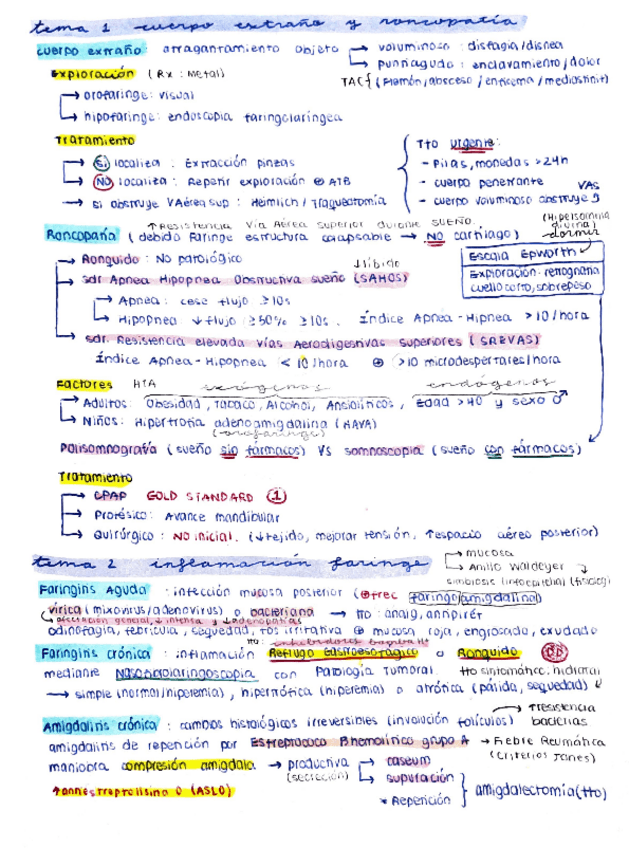 tema 1 cuerpo extraño y roncopatía
cuerpo extraño: atragantamiento objeto → voluminoso: disfagia/disnea
→ puntiagudo: enclavamiento/dolor
Exploración (Rx: metal)
TAC (Flemón/absceso/enfisema/mediastinit)
→ orofaringe: visual
→ hipofaringe: endoscopia faringolaríngea
Tratamiento
→ Sí localiza: Extracción pinzas
→ NO localiza: Repetir exploración ⊕ ATB
→ si obstruye VAérea sup: Heimlich/Traqueotomía
Tto urgente:
- Pilas, monedas >24h
- cuerpo penetrante
- cuerpo voluminoso obstruye VAS
↑Resistencia Vía Aérea Superior durante SUEÑO.
Roncopatía (debido Faringe estructura colapsable → NO cartílago)
(Hipersomnia diurna)
dormir
Escala Epworth
Exploración: retrognatia
cuello corto, sobrepeso
→ Ronquido: No patológico
↓líbido
→ sdr Apnea Hipopnea Obstructiva sueño (SAHOS)
→ Apnea: cese flujo ≥10s
→ Hipopnea ↓flujo ≥50% ≥10s. Índice Apnea-Hipnea >10/hora
→ sdr. Resistencia elevada vías Aerodigestivas superiores (SREVAS)
Índice Apnea-Hipopnea <10/hora ⊕ >10 microdespertares/hora
Factores HTA exógenos endógenos
→ Adultos: Obesidad, Tabaco, Alcohol, Ansiolíticos, Edad >40 y sexo ♂
→ Niños: Hipertrofia adenoamigdalina (HAVA)
(orofaringe)
Polisomnografía (sueño sin fármacos) VS somnoscopia (sueño con fármacos)
Tratamiento
→ CPAP GOLD STANDARD ①
→ Protésico: Avance mandibular
→ Quirúrgico: NO inicial. (↓tejido, mejorar tensión, ↑espacio aéreo posterior)
tema 2 inflamación faringe
→ mucosa
→ Anillo Waldeyer
simbiosis linfoepitelial (fisiológ)
Faringitis Aguda: infección mucosa posterior (⊕frec faringoamigdalina)
vírica (mixovirus/adenovirus) o bacteriana → tto: analg, antipiret
afectación general, ↓ intensa y ↓adenopatías
odinofagia, febrícula, sequedad, tos irritativa ⊕ mucosa roja, engrosada, exudado
Faringitis crónica: inflamación Reflujo Gastroesofágico o Ronquido
mediante Nasofibrolaringoscopia con Patología Tumoral. tto sintomátic. hidratar
→ simple (normal/hiperemia), hipertrófica (hiperemia) o atrófica (pálida, sequedad)
Amigdalitis crónica: cambios histológicos irreversibles (involución folículos) → ↑resistencia bacterias
amigdalitis de repetición por Estreptococo Bhemolítico grupo A → Fiebre Reumática
(criterios Jones)
maniobra compresión amígdala → productiva → caseum
(secreción) → supuración
* Repetición
amigdalectomía (tto)
↑antiestreptolisina O (ASLO)